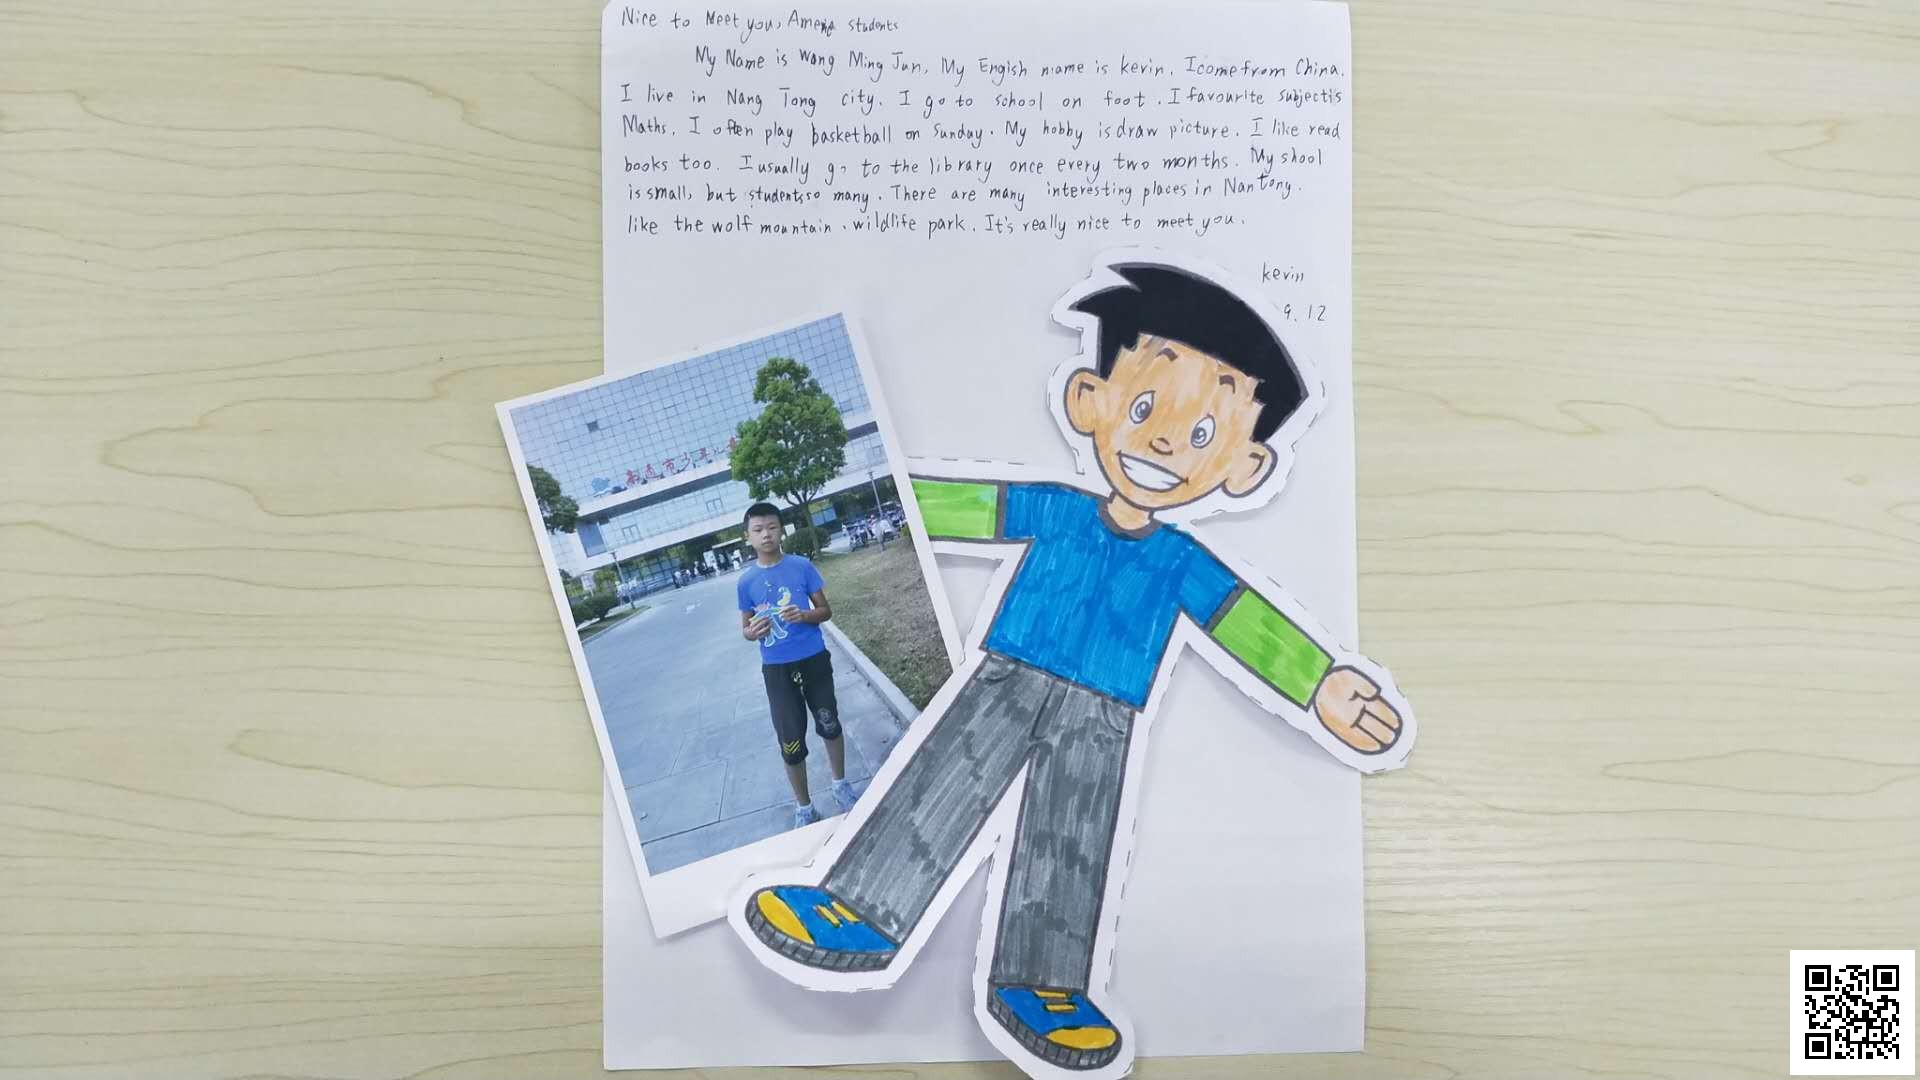 Nice to Meet you, students
My Name is Wang Ming Jun, My Engish name is kevin. I come from China.
I live in Nang Tong city. I go to school on foot. I favourite subject is
Maths, I often play basketball on Sunday. My hobby is draw picture. I like read
books too. I usually go to the library once every two months. My shool
is small, but students so many. There are many interesting places in Nantong.
like the wolf mountain、wildlife park. It's really nice to meet you.
kevin
9.12
南通市少年儿